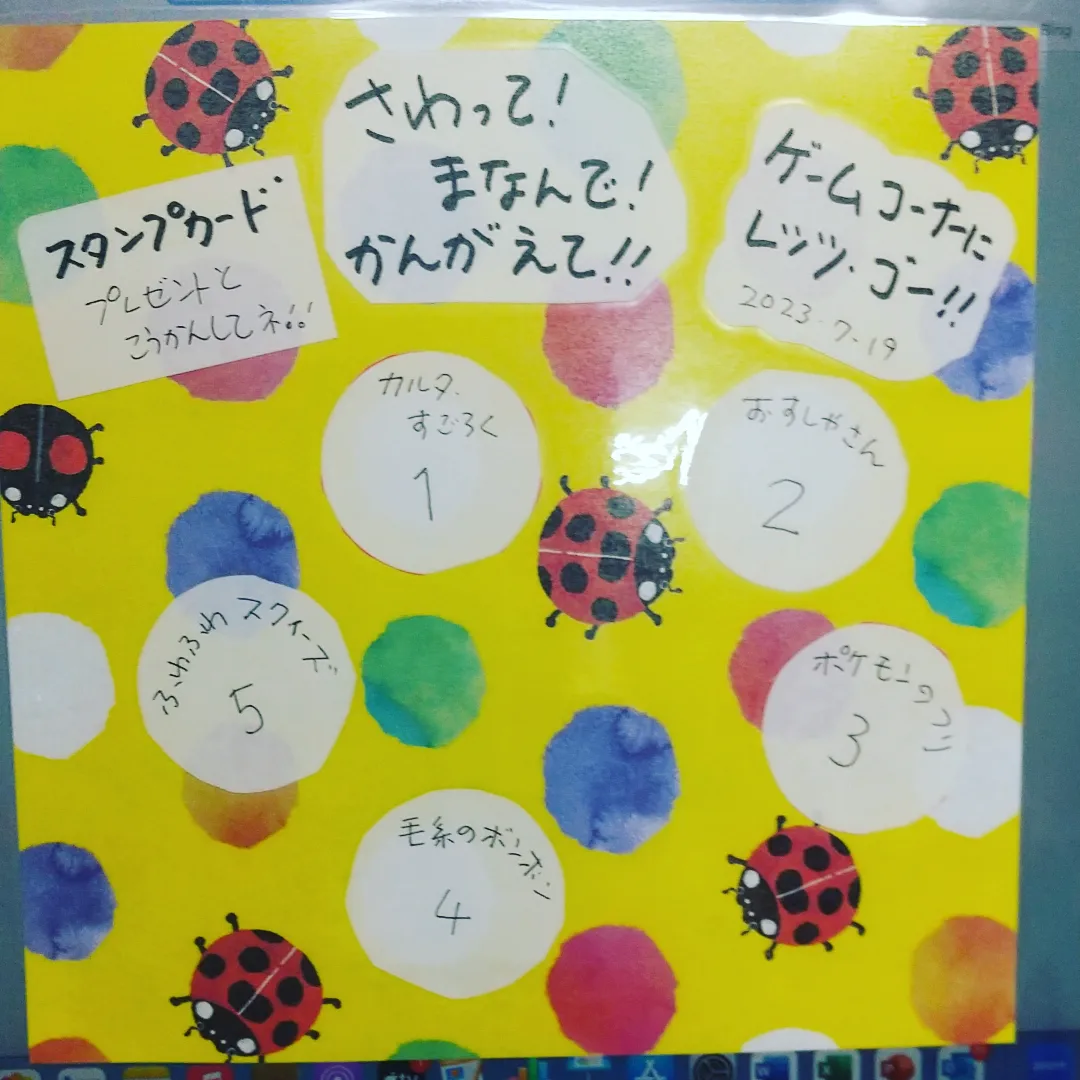 スタンプカード
プレゼントと
こうかんしてネ!!
さわって!
まなんで!
かんがえて!!
ゲームコーナーに
レッツ・ゴー!!
2023・7・19
カルタ、
すごろく
1
おすしやさん
2
ふわふわスクイーズ
5
3
毛糸のボンボン
4
Bing